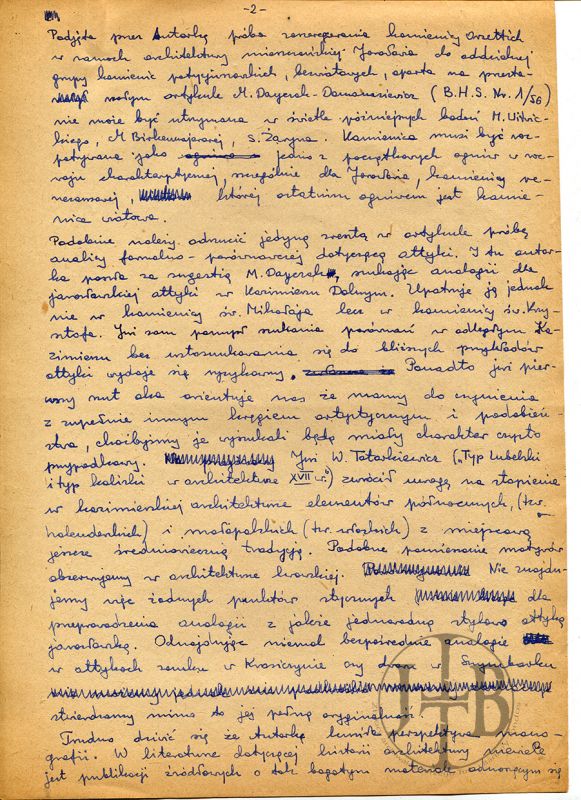 -2-
Podjęta przez Autorkę próba zaszeregowania kamienicy Orzettich
w ramach architektury mieszczańskiej Jarosławia do oddzielnej
grupy kamienic potycjmarskich, bezwiatowych, oparta na przesta-
rzałym artykule M. Dayczak-Domanasiewicz (B.H.S. Nr. 1/56)
nie może być utrzymana w świetle późniejszych badań M.
M Birkenmajerowej, S. Żaryna. Kamienica musi być roz-
patrywana jako jedno z początkowych ogniw w roz-
woju charakterystycznej, szczególnie dla Jarosławia, kamienicy re-
nesansowej, której ostatnim ogniwem jest kamie-
nica wiatowa.
Podobnie należy odrzucić jedyną zresztą w artykule próbę
analizy formalno-porównawczej dotyczącą attyki. I tu autor-
ka poszła za sugestią M. Dayczak, szukając analogii dla
jarosławskiej attyki w Kazimierzu Dolnym. Upatruje ją jednak
nie w kamienicy św. Mikołaja lecz w kamienicy św. Krzy-
sztofa. Już sam pomysł szukania porównań w odległym Ka-
zimierzu bez ustosunkowania się do bliższych przykładów
attyki wydaje się ryzykowny. Ponadto już pier-
wszy rzut oka orientuje nas że mamy do czynienia
z zupełnie innym kręgiem artystycznym i podobień-
stwa, choćbyśmy je wyszukali będą miały charakter czysto
przypadkowy. Już W. Tatarkiewicz ("Typ lubelski
i typ kaliski w architekturze XVII w.") zwrócił uwagę na stopienie
w kazimierskiej architekturze elementów północnych, (tzw.
holenderskich) i małopolskich (tzw. włoskich) z miejscową
jeszcze średniowieczną tradycją. Podobne pomieszanie motywów
obserwujemy w architekturze lwowskiej. Nie znajdu-
jemy więc żadnych punktów stycznych dla
przeprowadzenia analogii z jakże jednorodną stylowo attyką
jarosławską. Odnajdując niemal bezpośrednie analogie
w attykach zamku w Krasiczynie czy dworu w Szymbarku
stwierdzamy mimo to jej pełną oryginalność.
Trudno dziwić się że Autorkę kusiła perspektywa mono-
grafii. W literaturze dotyczącej historii architektury niewiele
jest publikacji źródłowych o tak bogatym materiale odnoszącym się
ITB